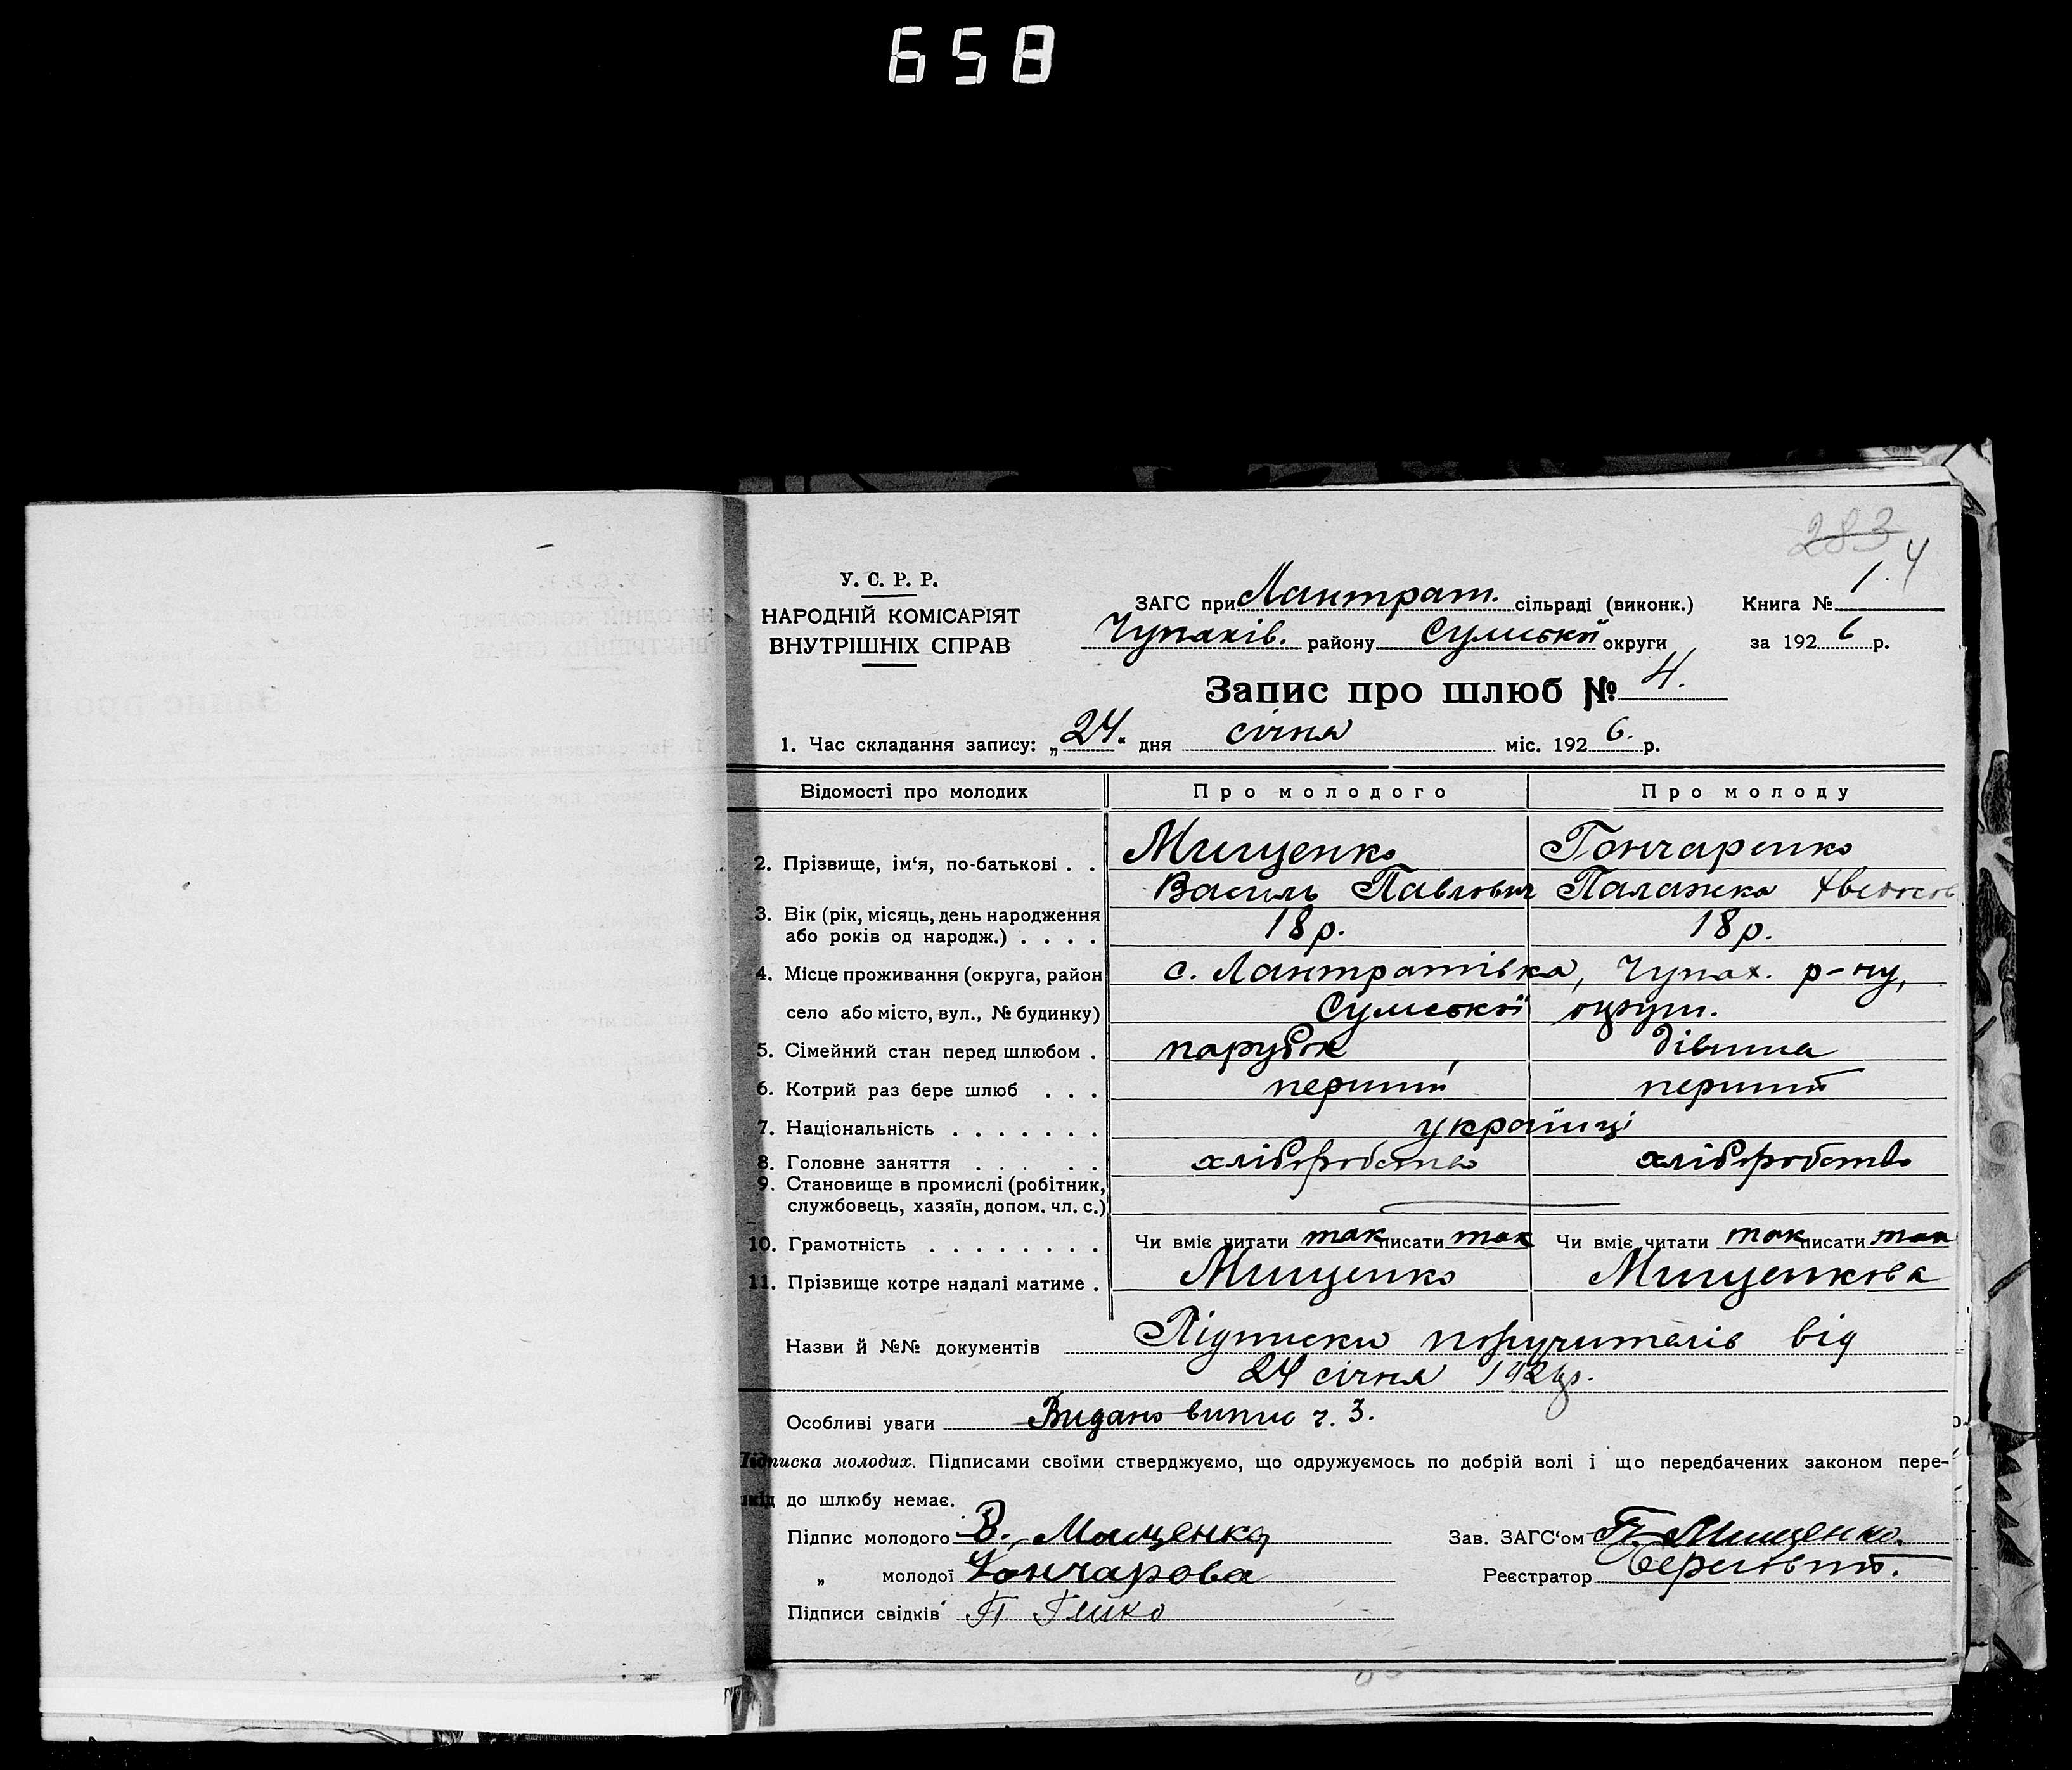 658
283 4
У. С. Р. Р.
НАРОДНІЙ КОМІСАРІЯТ
ВНУТРІШНІХ СПРАВ
ЗАГС при Лантрат. сільраді (виконк.) Книга № 1.
Чупахів. району Сумської округи за 192 6 р.
Запис про шлюб № 4.
1. Час складання запису: „24.“ дня січня міс. 192 6. р.
Відомості про молодих Про молодого Про молоду
2. Прізвище, ім‘я, по-батькові . . Мищенко Гончаренко
Василь Павлович Палажка
3. Вік (рік, місяць, день народження
або років од народж.) . . . . 18 р. 18 р.
4. Місце проживання (округа, район с. Лантратівка, Чупах. р-ну,
село або місто, вул., № будинку) Сумської округи.
5. Сімейний стан перед шлюбом . парубок дівчина
6. Котрий раз бере шлюб . . . перший перший
7. Національність . . . . . . . українці
8. Головне заняття . . . . . хліборобство хліборобство
9. Становище в промислі (робітник,
службовець, хазяїн, допом. чл. с.)
10. Грамотність . . . . . . . . Чи вміє читати так писати так Чи вміє читати так писати так
11. Прізвище котре надалі матиме . Мищенко Мищенкова
Назви й №№ документів Підписки поручителів від
24 січня 1926 р.
Особливі уваги Видано випис ч. 3.
Підписка молодих. Підписами своїми стверджуємо, що одружуємось по добрій волі і що передбачених законом пере-
шкід до шлюбу немає.
Підпис молодого В. Мищенко Зав. ЗАГС‘ом П. Мищенко.
„ молодої Гончарова Реєстратор
Підписи свідків П